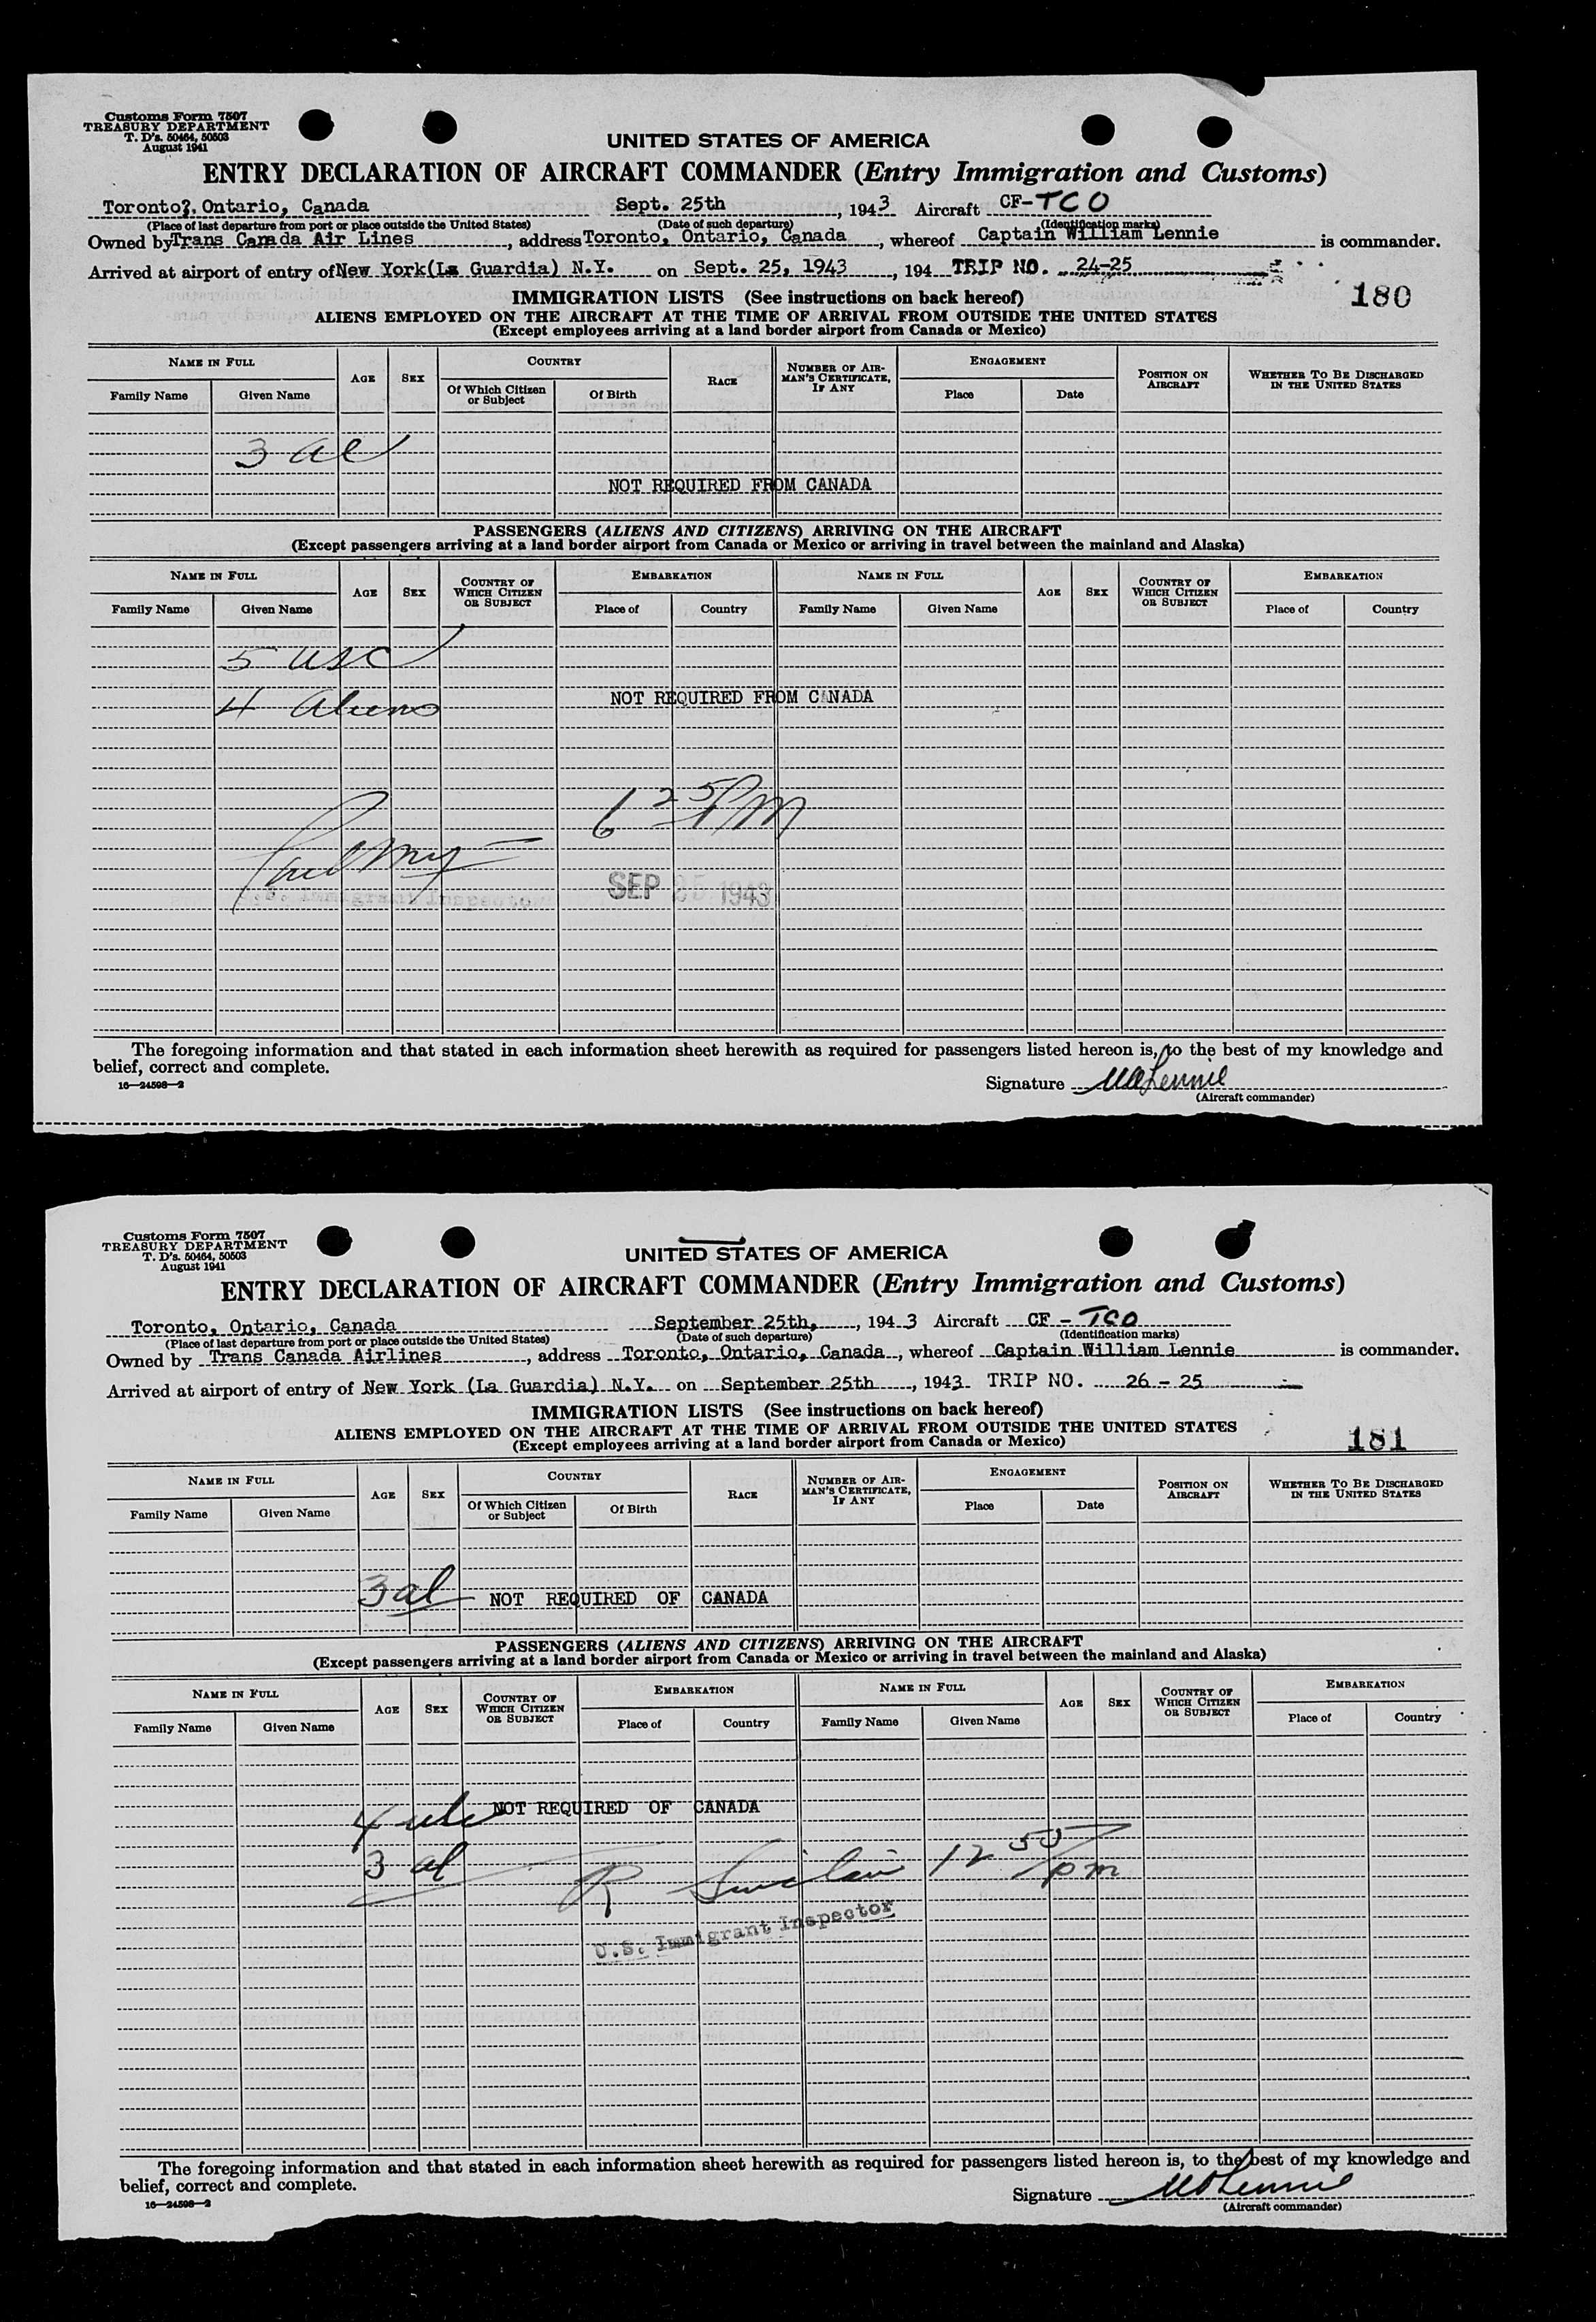 Customs Form 7507
TREASURY DEPARTMENT
T. D's. 50464, 50503
August 1941
UNITED STATES OF AMERICA
ENTRY DECLARATION OF AIRCRAFT COMMANDER (Entry Immigration and Customs)
Toronto?, Ontario, Canada Sept. 25th, 1943 Aircraft CF-TCO
(Place of last departure from port or place outside the United States) (Date of such departure) (Identification marks)
Owned by Trans Canada Air Lines, address Toronto, Ontario, Canada, whereof Captain William Lennie is commander.
Arrived at airport of entry of New York(La Guardia) N.Y. on Sept. 25, 1943, 194 TRIP NO. 24-25
180
IMMIGRATION LISTS (See instructions on back hereof)
ALIENS EMPLOYED ON THE AIRCRAFT AT THE TIME OF ARRIVAL FROM OUTSIDE THE UNITED STATES
(Except employees arriving at a land border airport from Canada or Mexico)
NAME IN FULL AGE SEX COUNTRY RACE NUMBER OF AIRMAN'S CERTIFICATE, IF ANY ENGAGEMENT POSITION ON AIRCRAFT WHETHER TO BE DISCHARGED IN THE UNITED STATES
Family Name Given Name Of Which Citizen or Subject Of Birth Place Date
3 al
NOT REQUIRED FROM CANADA
PASSENGERS (ALIENS AND CITIZENS) ARRIVING ON THE AIRCRAFT
(Except passengers arriving at a land border airport from Canada or Mexico or arriving in travel between the mainland and Alaska)
NAME IN FULL AGE SEX COUNTRY OF WHICH CITIZEN OR SUBJECT EMBARKATION NAME IN FULL AGE SEX COUNTRY OF WHICH CITIZEN OR SUBJECT EMBARKATION
Family Name Given Name Place of Country Family Name Given Name Place of Country
5 usc
4 Aliens NOT REQUIRED FROM CANADA
6 25 PM
U.S. Immigrant Inspector SEP 25 1943
The foregoing information and that stated in each information sheet herewith as required for passengers listed hereon is, to the best of my knowledge and
belief, correct and complete.
16—24598—2
Signature WALennie
(Aircraft commander)
Customs Form 7507
TREASURY DEPARTMENT
T. D's. 50464, 50503
August 1941
UNITED STATES OF AMERICA
ENTRY DECLARATION OF AIRCRAFT COMMANDER (Entry Immigration and Customs)
Toronto, Ontario, Canada September 25th, 1943 Aircraft CF - TCO
(Place of last departure from port or place outside the United States) (Date of such departure) (Identification marks)
Owned by Trans Canada Airlines, address Toronto, Ontario, Canada, whereof Captain William Lennie is commander.
Arrived at airport of entry of New York (La Guardia) N.Y. on September 25th, 1943 TRIP NO. 26 - 25
IMMIGRATION LISTS (See instructions on back hereof)
ALIENS EMPLOYED ON THE AIRCRAFT AT THE TIME OF ARRIVAL FROM OUTSIDE THE UNITED STATES
181
(Except employees arriving at a land border airport from Canada or Mexico)
NAME IN FULL AGE SEX COUNTRY RACE NUMBER OF AIRMAN'S CERTIFICATE, IF ANY ENGAGEMENT POSITION ON AIRCRAFT WHETHER TO BE DISCHARGED IN THE UNITED STATES
Family Name Given Name Of Which Citizen or Subject Of Birth Place Date
3 al NOT REQUIRED OF CANADA
PASSENGERS (ALIENS AND CITIZENS) ARRIVING ON THE AIRCRAFT
(Except passengers arriving at a land border airport from Canada or Mexico or arriving in travel between the mainland and Alaska)
NAME IN FULL AGE SEX COUNTRY OF WHICH CITIZEN OR SUBJECT EMBARKATION NAME IN FULL AGE SEX COUNTRY OF WHICH CITIZEN OR SUBJECT EMBARKATION
Family Name Given Name Place of Country Family Name Given Name Place of Country
4 usc NOT REQUIRED OF CANADA
3 al R Sinclair 12 50 pm
U.S. Immigrant Inspector
The foregoing information and that stated in each information sheet herewith as required for passengers listed hereon is, to the best of my knowledge and
belief, correct and complete.
16—24598—2
Signature WALennie
(Aircraft commander)